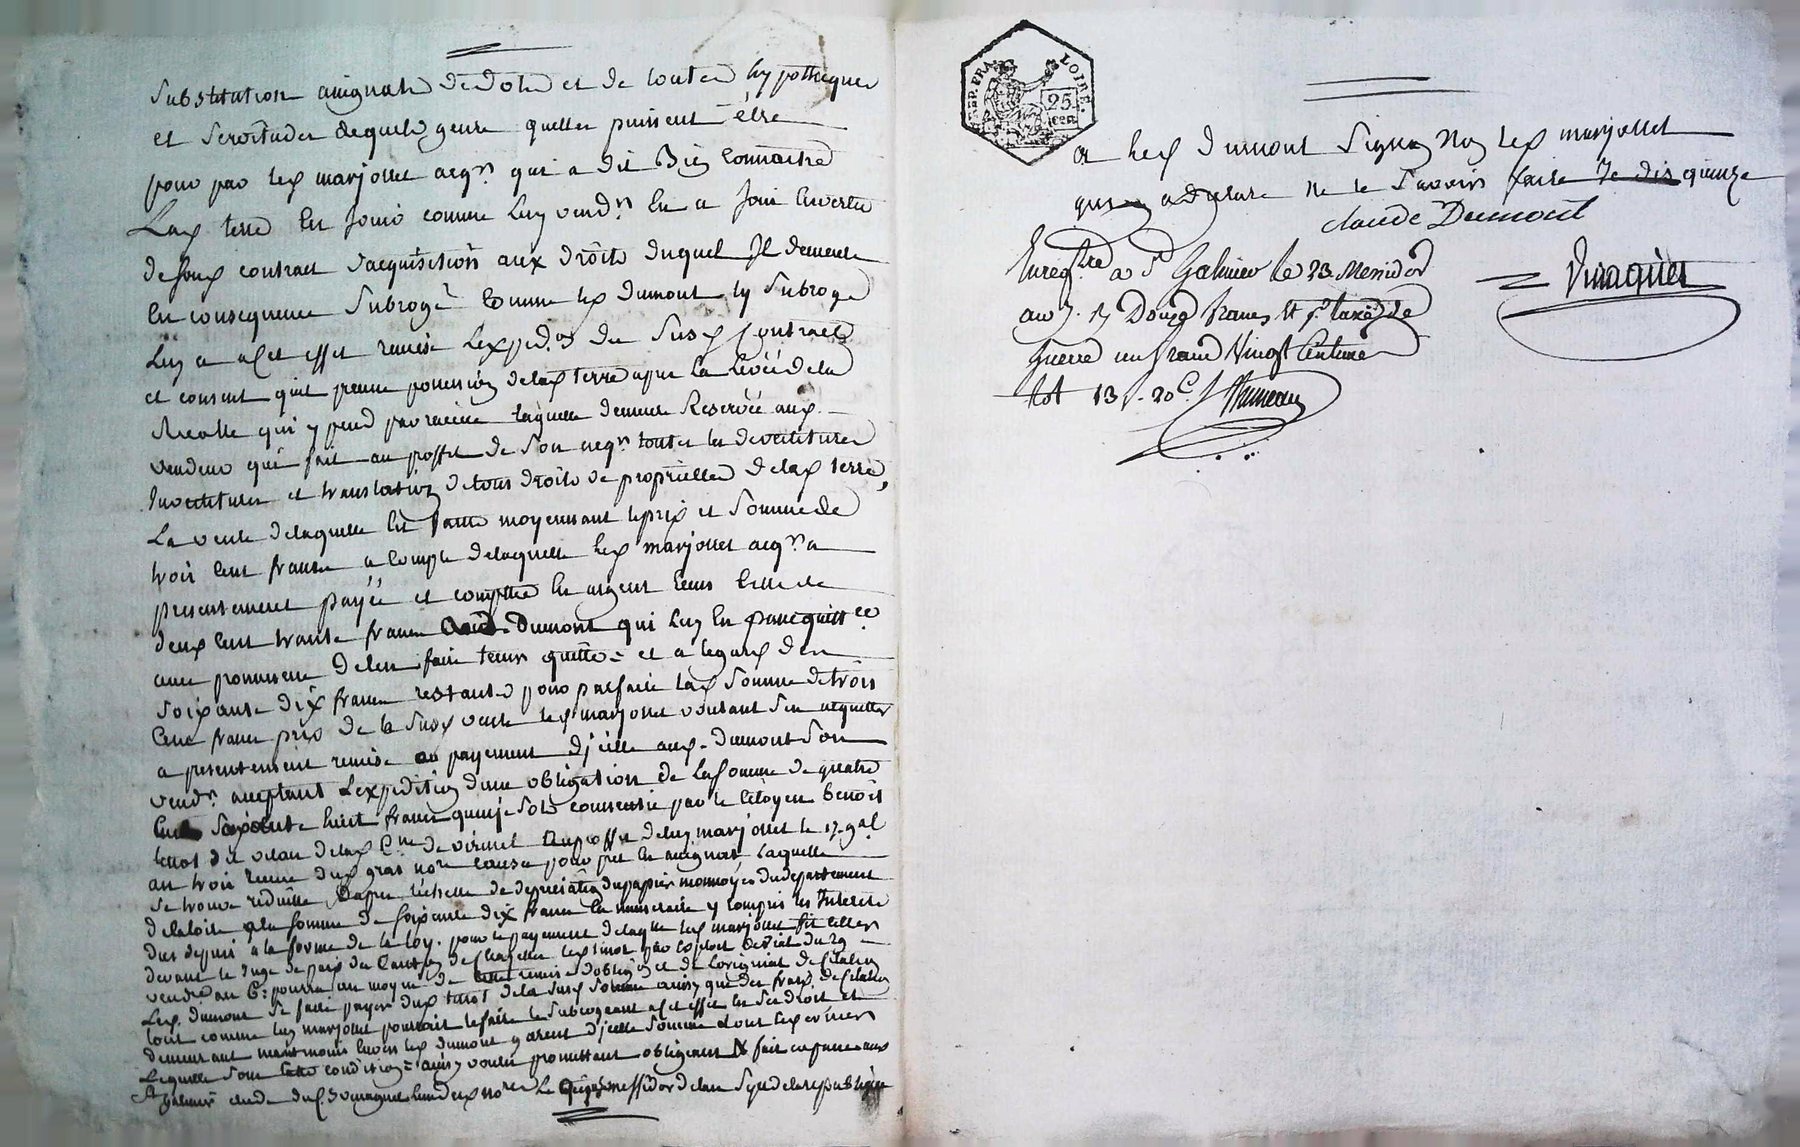 substitution assignats de dote et de toutes hypotheques
et servitudes dequelq genre quelles puissent être
pour par led marjollet acqr qui a dit Bien Connaitre
Lad terre en Jouir comme Luy vendr en a Joui En vertu
de son contract d'acquisition aux droits duquel Il demeure
En consequence Subrogé Comme led dumont ly Subroge
Luy a a cet effet remise L'expedon du Susd Contract
et consent qu'il prenne possession delad terre apres La levée dela
Recolte qui y pend par racine laquelle demeure Reservée aud
vendeur qui fait au proffit de Son acqr toutes les devestitures
Investitures et translation de tous droits de propriettes delad terre,
La vente delaquelle Est faitte moyennant le prix et Somme de
trois cent francs a Compte delaquelle led marjollet acqr a
presentement payée et comptée En argent Celle de
deux cent trante francs dumont qui Luy En passe quittce
avec promesse de l'en faire tenir quitte = et a l'egard des
Soixante dix francs restants pour parfaire lad Somme de trois
Cent francs prix de la Susd vente led marjollet voulant s'en acquitter
a presentement remise au payement d'icelle aud. dumont Son
vendr acceptant L'expedition d'une obligation de La Somme de quatre
Cent Soixante huit francs quinze sols consentie par le Citoyen Benoit
delad Cne de virinel au proffit de luy marjollet le 17. 9al
an trois recue dud gras nore pour pret En assignats Laquelle
Se trouve reduitte D'apres l'échelle de depreciation du papier monnoyes du departement
delaloire a la Somme de Soixante dix francs En numeraire y Compris les Interets
dus depuis a la forme de la loy. pour le payement delaqlle led marjollet fit citter
devant le Juge de paix du Canton de Chazelles led par Exploit du 29
vendre an 6: pourra au moyen de cette remise d'oblign et de l'original de Citation
Led. dumont Se faire payer dud de la Susd Somme ainsy que des frais de Citation
tout comme luy marjollet pourrait le faire le Subrogeant a cet effet En Ses droits et
demeurant neantmoins Envers led dumont garent d'icelle Somme dont led
Lequelle Sous cette condition = ainsy voulu promettant obligeant & fait et passé aud
St galmier etude du Cn notre Le quinze messidor de l'an Sixe de la republique
REP. FRA. LOIRE.
25
CEN
et led dumont Signé Non led marjollet
qui a declaré ne le Savoir faire Ce dit quinze
claude Dumont
Enregistré a St Galmier le 23 Messidor
an 6. Douze francs et pr taxe de
Guerre un franc Vingt Centimes
tot 13 f. 20 C.